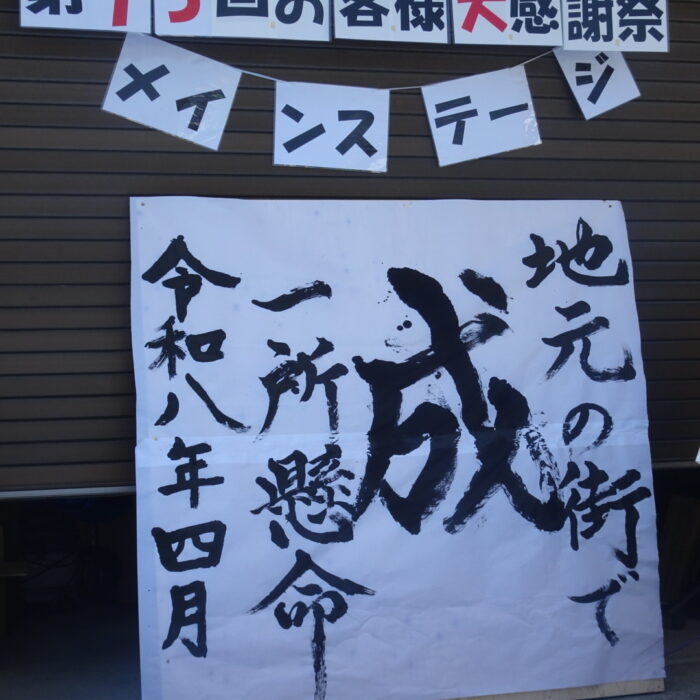 第15回のお客様大感謝祭
メインステージ
地元の街で
成
一所懸命
令和八年四月